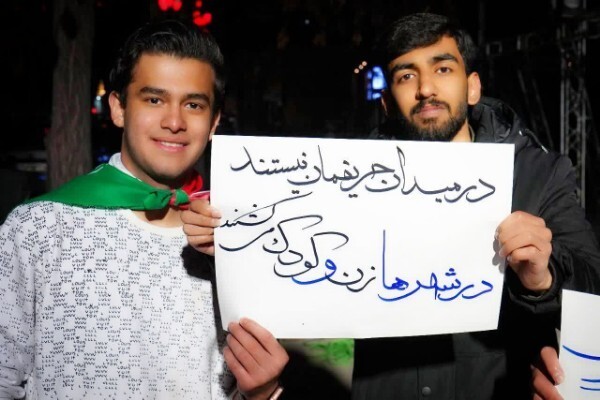 در میدان حریفمان نیستند
در شهرها زن و کودک میکشند